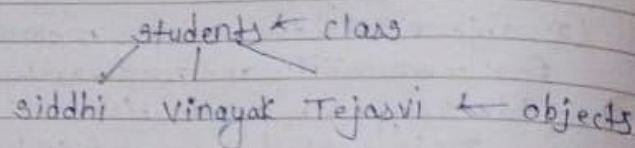 students ← class
siddhi vinayak Tejasvi ← objects